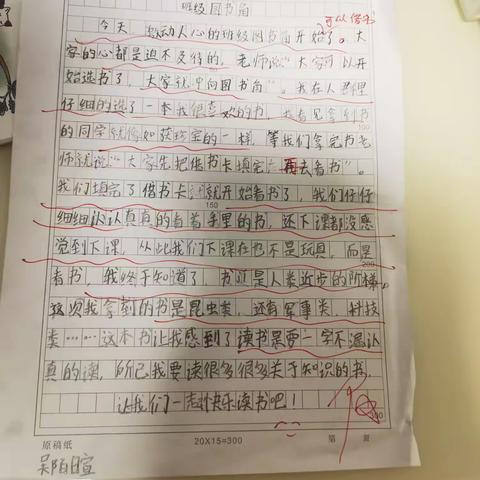 班级图书角
可以借书
今天,激动人心的班级图书角开始了。大
家的心都是迫不及待的,老师说“大家可以开
始选书了,大家就冲向图书角”。我在人群里
仔细的选了一本我很喜欢的书,我看见拿到书
100
的同学就像如获珍宝的一样,等我们拿完书老
师就说“大家先把借书卡填完 再去看书”。
我们填完了借书卡 就开始看书了,我们仔仔
150
细细认认真真的看着手里的书,还下课都没感
觉到下课,从此我们下课在也不是玩具,而是
200
看书,我终于知道了,书 是人类近步的阶梯。
这次我拿到的书是昆虫类,还有军事类,科技
类……这本书让我感到了读书 要一字不漏认
真的读,所已我要读很多很多关于知识的书,
让我们一起快乐读书吧!
300
原稿纸
20X15=300
第 页
吴陌暄